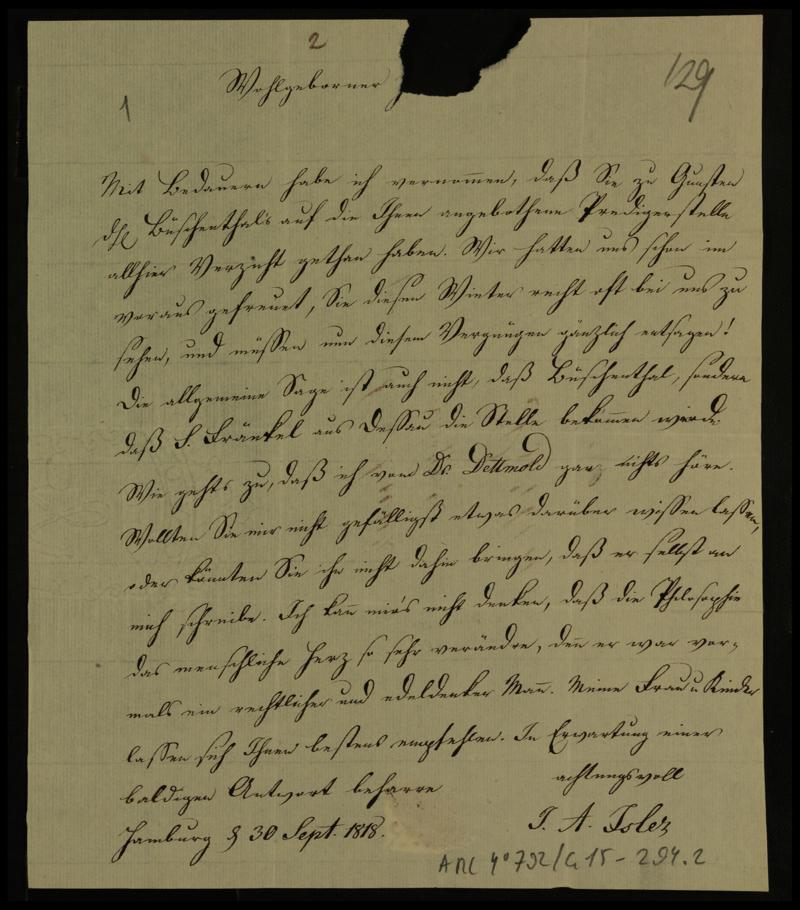 2
129
1
Wohlgeborner
Mit Bedauern habe ich vernommen, daß Sie zu Gunsten
Büschenthal's auf die Ihnen angebothene Predigerstelle
allhier Verzicht gethan haben. Wir hatten uns schon im
voraus gefreuet, Sie diesen Winter recht oft bei uns zu
sehen, und müssen nun diesem Vergnügen gänzlich entsagen!
Die allgemeine Sage ist auch nicht, daß Büschenthal, sondern
daß S. Fränkel aus Dessau die Stelle bekommen werde.
Wie gehts zu, daß ich vom Dr. Dettmold gar nichts höre.
Wollten Sie mir nicht gefälligst etwas darüber wissen lassen,
oder könnten Sie ihn nicht dahin bringen, daß er selbst an
mich schreibe. Ich kan̄ mir's nicht denken, daß die Philosophie
das menschliche Herz so sehr verändre, den̄ er war vor-
mals ein rechtlicher und edeldenker Man̄. Meine Frau u Kinder
lassen sich Ihnen bestens empfehlen. In Erwartung einer
baldigen Antwort beharre
achtungsvoll
Hamburg d 30 Sept. 1818.
J. A. Isler
ARC 4° 792/G 15 - 294.2